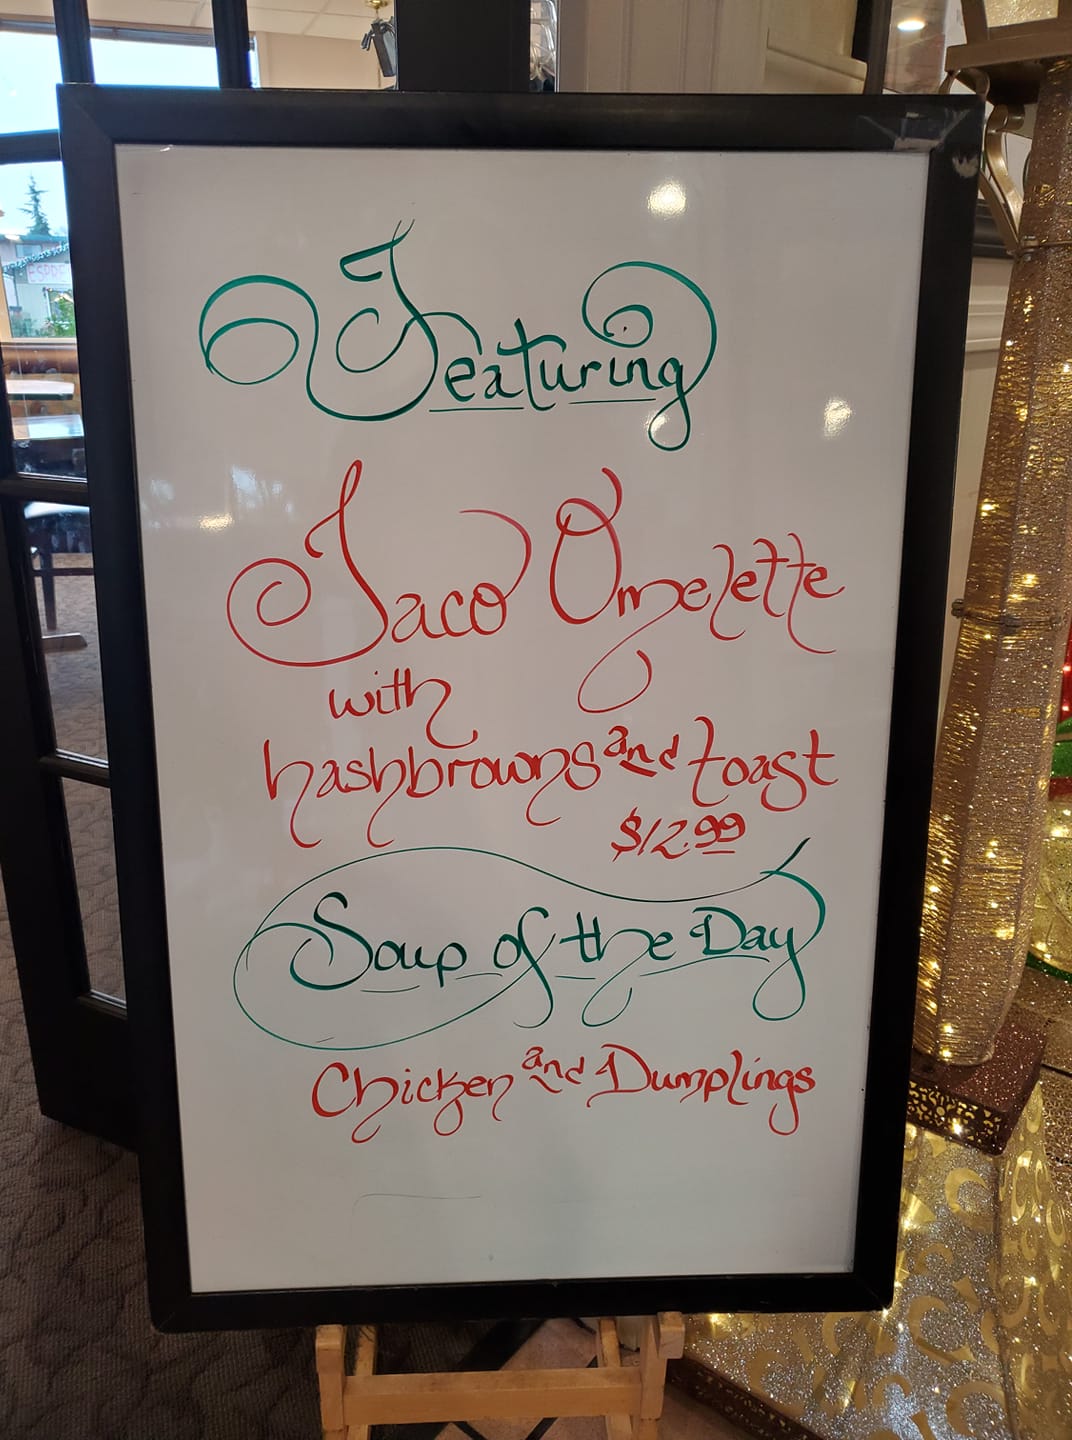 Featuring
Taco Omelette
with
hashbrowns and toast
$12.99
Soup of the Day
Chicken and Dumplings